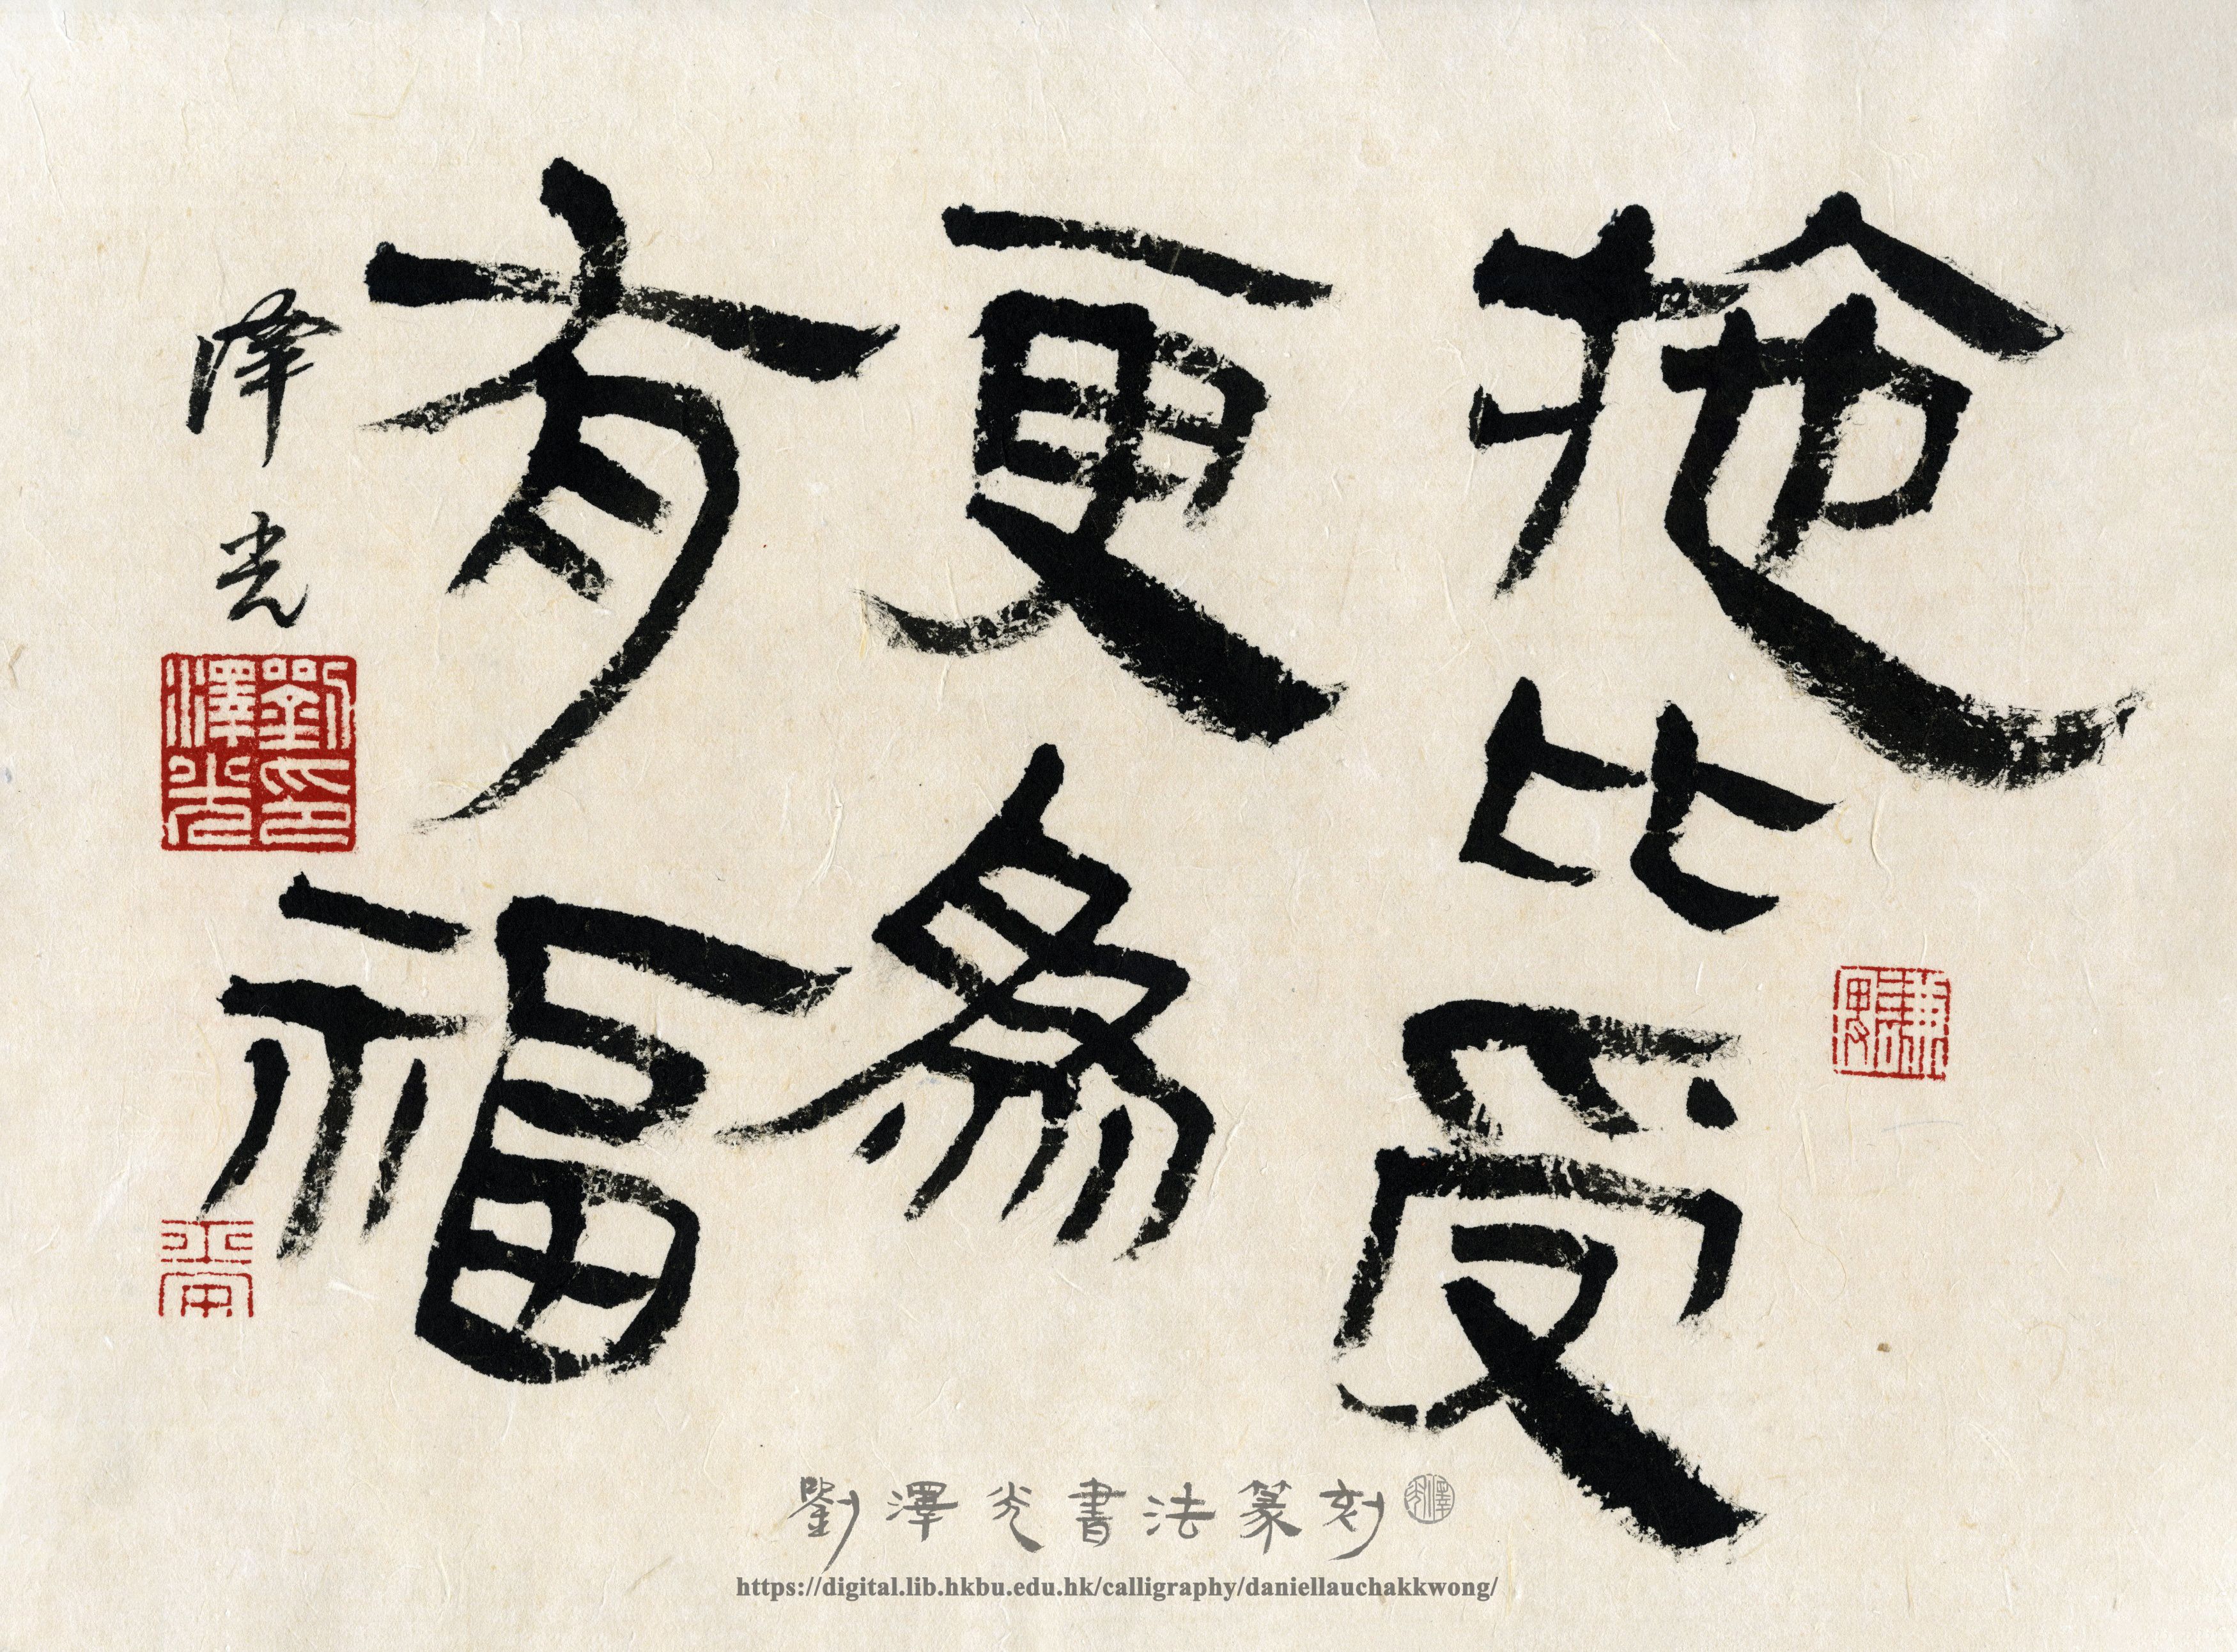 拖比受
更為
有福
澤光
劉澤光印
劉澤光書法篆刻
https://digital.lib.hkbu.edu.hk/calligraphy/daniellauchakkwong/